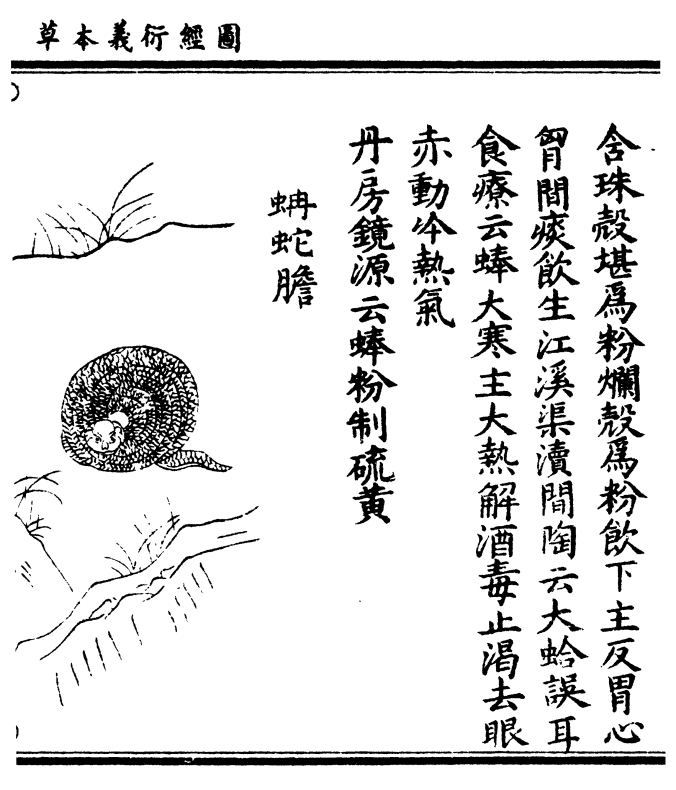 圖經衍義本草
含珠殼堪爲粉爛殼爲粉飲下主反胃心
胷間痰飲生江溪渠瀆間陶云大蛤誤耳
食療云蜯大寒主大熱解酒毒止渴去眼
赤動冷熱氣
丹房鏡源云蜯粉制硫黄
蚺蛇膽